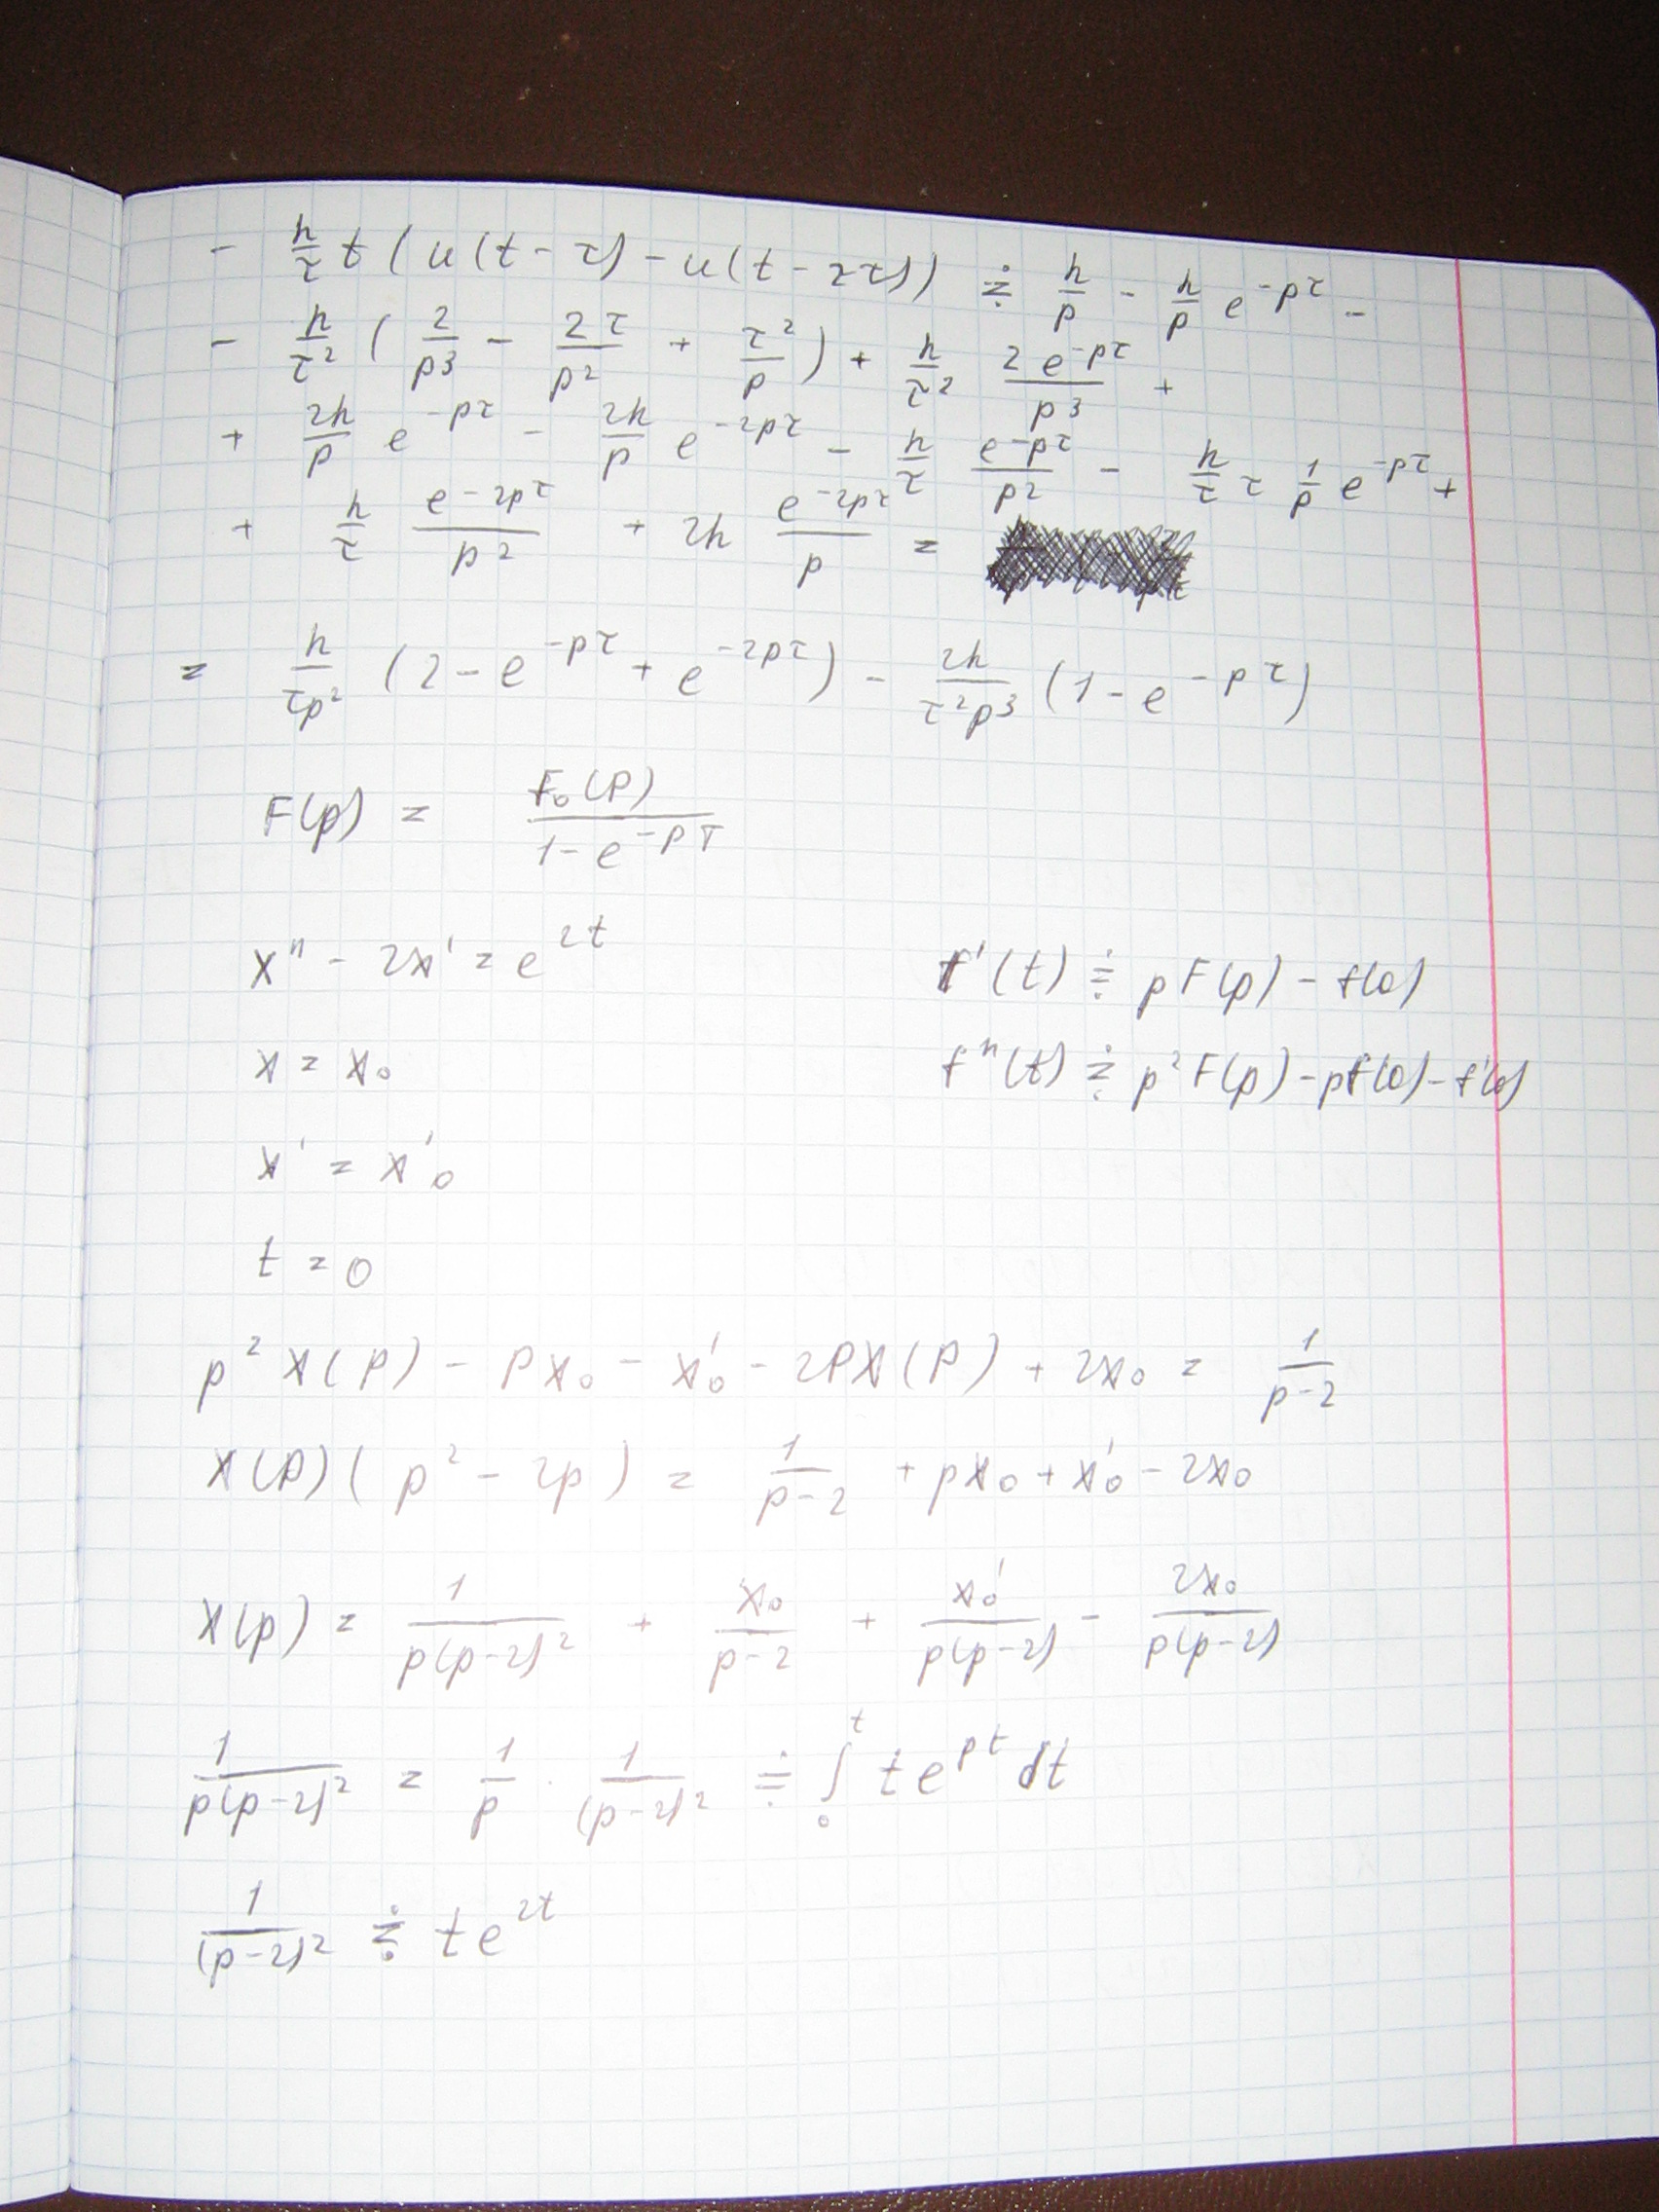 - h/τ t (u(t-τ) - u(t-2τ)) ≑ h/p - h/p e^{-pτ} -
- h/τ² (2/p³ - 2τ/p² + τ²/p) + h/τ² 2e^{-pτ}/p³ +
+ 2h/p e^{-pτ} - 2h/p e^{-2pτ} - h/τ e^{-pτ}/p² - h/τ τ 1/p e^{-pτ} +
+ h/τ e^{-2pτ}/p² + 2h e^{-2pτ}/p =
= h/τp² (2 - e^{-pτ} + e^{-2pτ}) - 2h/τ²p³ (1 - e^{-pτ})
F(p) = F₀(p)/1-e^{-pT}
x'' - 2x' = e^{2t} f'(t) ≑ pF(p) - f(0)
x = x₀ f''(t) ≑ p²F(p) - pf(0) - f'(0)
x' = x'₀
t = 0
p²X(p) - px₀ - x'₀ - 2pX(p) + 2x₀ = 1/p-2
X(p)(p² - 2p) = 1/p-2 + px₀ + x'₀ - 2x₀
X(p) = 1/p(p-2)² + x₀/p-2 + x'₀/p(p-2) - 2x₀/p(p-2)
1/p(p-2)² = 1/p · 1/(p-2)² ≑ ∫₀^t te^{pt} dt
1/(p-2)² ≑ te^{2t}